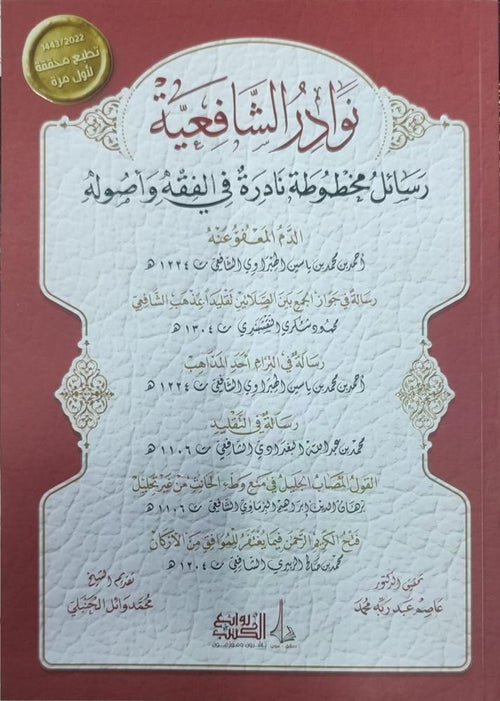 1443/2022
تطبع محققة
لأول مرة
نَوَادِرُ الشَّافِعِيَّة
رَسَائلُ مَخْطُوطَة نَادِرَةٌ في الفِقْهِ وَأصُوله
الدَّمُ المَعْفُوّ عَنْهُ
أحمد بن محمد بن ياسين الحيراوي الشافعي ت ١٢٢٤ هـ
رسالة في جواز الجمع بين الصلاتين تقليداً بمذهب الشافعي
محمود شكري النقشبندي ت ١٣٠٤ هـ
رسالة في التزام أحد المذاهب
أحمد بن محمد بن ياسين الحيراوي الشافعي ت ١٢٢٤ هـ
رسالة في التقليد
محمد بن عبد الله البغدادي الشافعي ت ١١٠٦ هـ
القول المصاب الجليل في منع وطء الحانث من غير تحليل
برهان الدين إبراهيم البرماوي الشافعي ت ١١٠٦ هـ
فتح الكريم الرحمن فيما يغتفر للموافق من الأركان
محمد بن صالح الزبيري الشافعي ت ١٢٠٤ هـ
تحقيق الدكتور
عَاصِم عَبد رَبِّه مُحمّد
تقديم الشيخ
مُحَمَّد وَائل الحَنْبَلِي
روائع
الكتب
ناشرون وموزعون